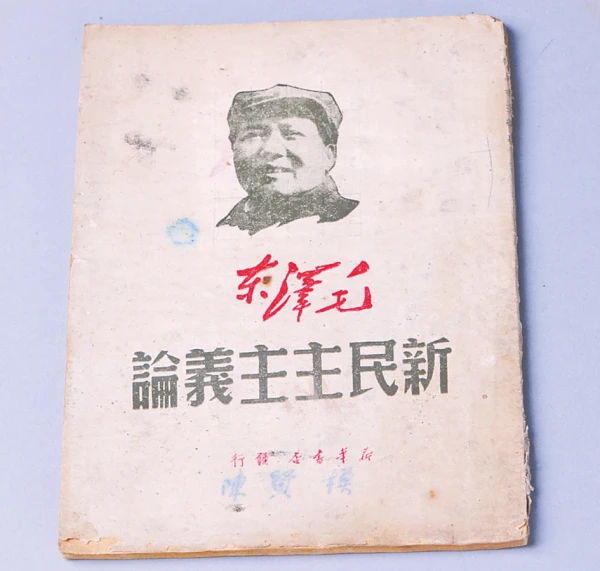 毛澤东
新民主主義論
新華書店發行
陳賢